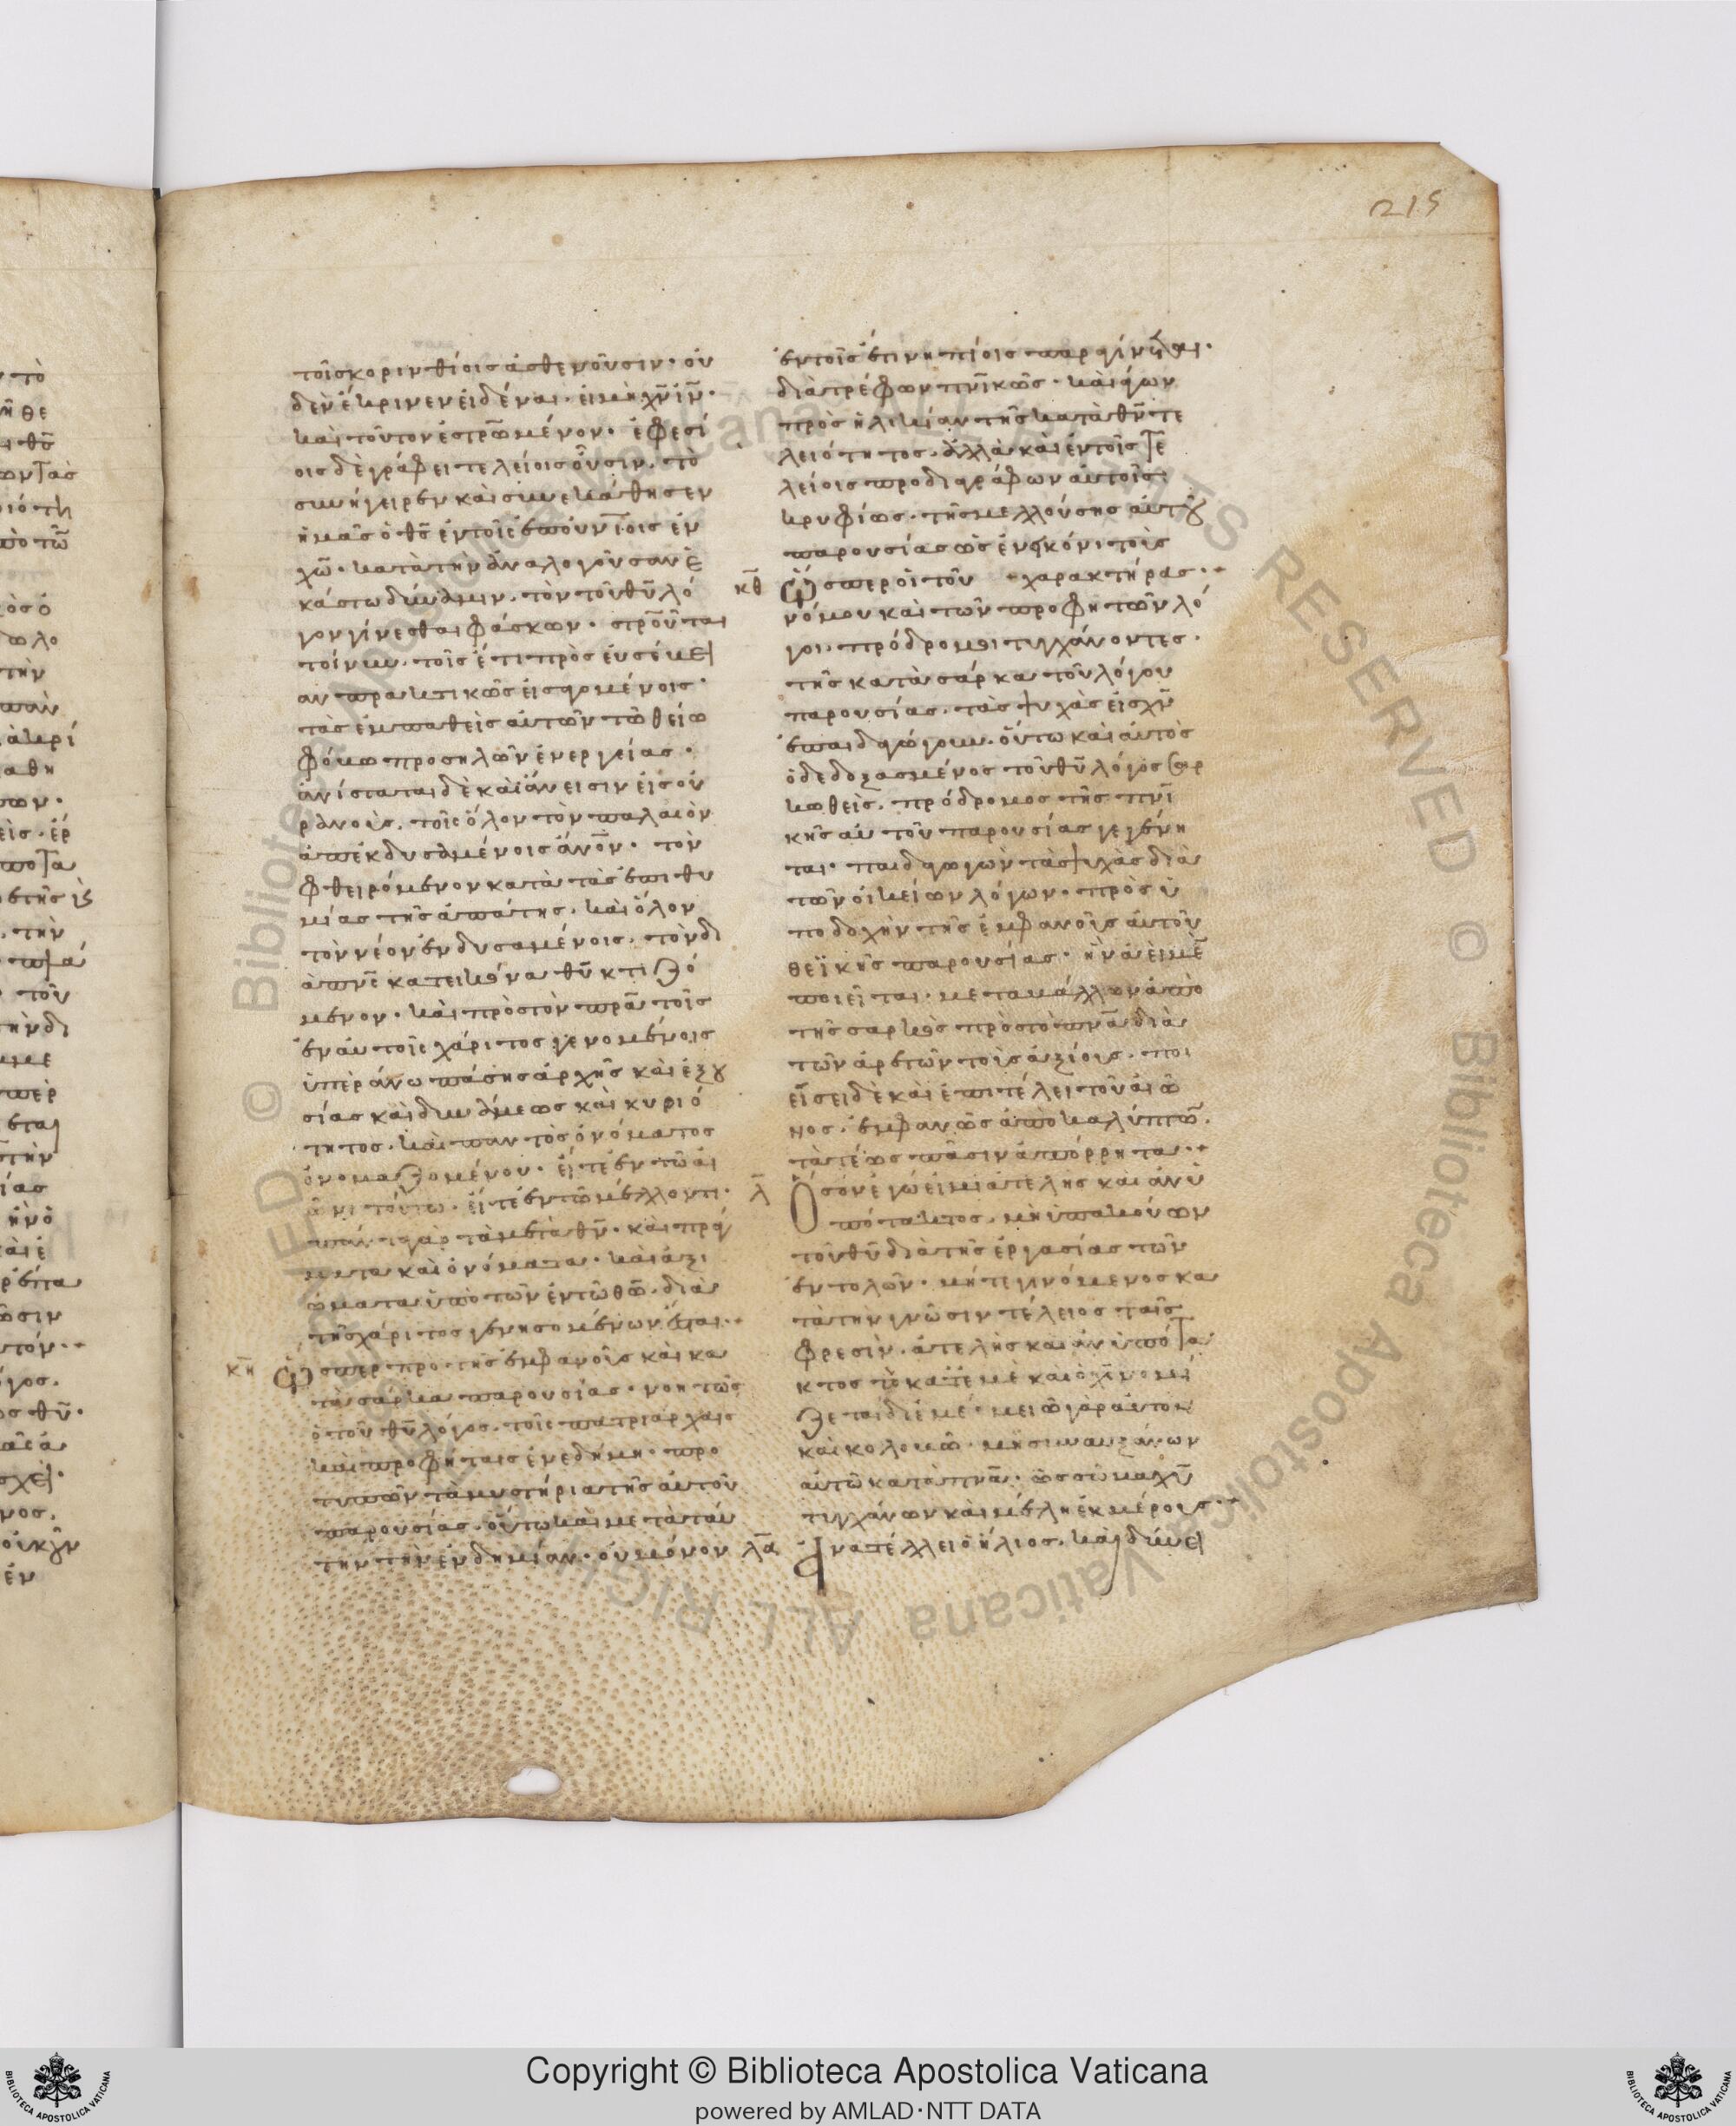 215
τὸ
θε
τὴν
τοῖς κορινθίοις ἀσθενοῦσιν· οὐ
δὲν ἔκρινεν εἰδέναι· εἰ μὴ χ̅ν ι̅ν·
καὶ τοῦτον ἐστρωμένον· ἐφεσί
οις δὲ γράφει τελείοις οὖσιν. τὸ
συνήγειρεν καὶ συνεκάθησεν
ἡμᾶς ὁ θ̅ς ἐν τοῖς ἐπουν̅ίοις ἐν
χ̅ω· κατὰ τὴν ἀναλογοῦσαν ἑ
κάστω δύναμιν. τὸν τοῦ θ̅υ λό
γον γίνεσθαι φάσκων· στρο̅ῦται
τοίνυν. τοῖς ἔτι πρὸς εὐσέβει
αν πρακτικῶς εἰσαγομένοις·
τὰς ἐμπαθεῖς αὐτῶν τῶ θείω
φόβω προσηλῶν ἐνεργείας·
ἀνίσταται δὲ καὶ ἄνεισιν εἰς οὐ
ρανοὺς. τοῖς ὅλον τὸν παλαιὸν
ἀπεκδυσαμένοις ἄν̅ον· τὸν
φθειρόμενον κατὰ τὰς ἐπιθυ
μίας τῆς ἀπάτης. καὶ ὅλον
τὸν νέον ἐνδυσαμένοις. τὸν δι
ὰ πν̅ς κατ εἰκόνα θ̅υ κτιζό
μενον· καὶ πρὸς τὸν πρ̅α τοῖς
ἐν αὐτοῖς χάριτος γενομένοις
ὑπεράνω πάσης ἀρχῆς καὶ ἐξου
σίας καὶ δυνάμεως καὶ κυριό
τητος. καὶ παντὸς ὀνόματος
ὀνομαζομένου· εἴτε ἐν τῶ αἰ
ῶνι τούτω· εἴτε ἐν τῶ μέλλοντι·
πάντα γὰρ τὰ μετὰ θ̅ν· καὶ πράγ
ματα καὶ ὀνόματα· καὶ ἀξι
ώματα ὑπὸ τῶν ἐν τῶ θ̅ω. διὰ
τῆς χάριτος γενησομένων ἔσται·
κη ὥσπερ πρὸ τῆς ἐμφανοῦς καὶ κα
τὰ σάρκα παρουσίας· νοητῶς
ὁ τοῦ θ̅υ λόγος. τοῖς πατριάρχαις
καὶ προφήταις ἐνεδήμη· προ
τυπῶν τὰ μυστήρια τῆς αὐτοῦ
παρουσίας· οὕτω καὶ μετὰ ταύ
την τὴν ἐνδημίαν· οὐ μόνον
ἐν τοῖς ἔτι νηπίοις παραγίνεται·
διατρέφων πν̅ικῶς· καὶ ἄγων
πρὸς ἡλικίαν τῆς κατὰ θ̅ν τε
λειότητος. ἀλλὰ καὶ ἐν τοῖς τε
λείοις προδιαγράφων αὐτοῖς
κρυφίως. τῆς μελλούσης αὐτοῦ
παρουσίας ὡς ἐν εἰκόνι τοὺς
χαρακτήρας·
κθ ὥσπερ οἱ τοῦ
νόμου καὶ τῶν προφητῶν λό
γοι. πρόδρομοι τυγχάνοντες·
τῆς κατὰ σάρκα τοῦ λόγου
παρουσίας. τὰς ψυχὰς εἰς χ̅ν
ἐπαιδαγώγουν. οὕτω καὶ αὐτὸς
ὁ δεδοξασμένος τοῦ θ̅υ λόγος σαρ
κωθεὶς. πρόδρομος τῆς πν̅ι
κῆς αὐτοῦ παρουσίας γεγένη
ται· παιδαγωγῶν τὰς ψυχὰς διὰ
τῶν οἰκείων λόγων· πρὸς ὑ
ποδοχὴν τῆς ἐμφανοῦς αὐτοῦ
θεϊκῆς παρουσίας· ἣν ἀεὶ μὲ̅
ποιεῖται· μεταβάλλων ἀπὸ
τῆς σαρκὸς πρὸς τὸ πν̅α διὰ
τῶν ἀρετῶν τοὺς ἀξίους. ποι
ήσει δὲ καὶ ἐπὶ τέλει τοῦ αἰῶ
νος. ἐμφανῶς ἀποκαλύπτω̅.
τὰ τέως πᾶσιν ἀπόρρητα·
λ ὅσον ἐγώ εἰμι ἀτελὴς καὶ ἀνυ
πότακτος. μὴ ὑπακούων
τοῦ θ̅υ διὰ τῆς ἐργασίας τῶν
ἐντολῶν· μήτι γινόμενος κα
τὰ τὴν γνῶσιν τέλειος ταῖς
φρεσὶν. ἀτελὴς καὶ ἀνυπότα
κτος τὸ κατ ἐμὲ καὶ ὁ χ̅ς νομί
ζεται δι ἐμέ· μειῶ γὰρ αὐτὸν
καὶ κολοβῶ· μὴ συναυξάνων
αὐτῶ κατὰ πν̅α· ὡς σῶμα χ̅υ
τυγχάνων καὶ μέλη ἐκ μέρους·
λα ἀνατέλλει ὁ ἥλιος. καὶ δύνει
Copyright © Biblioteca Apostolica Vaticana
powered by AMLAD·NTT DATA